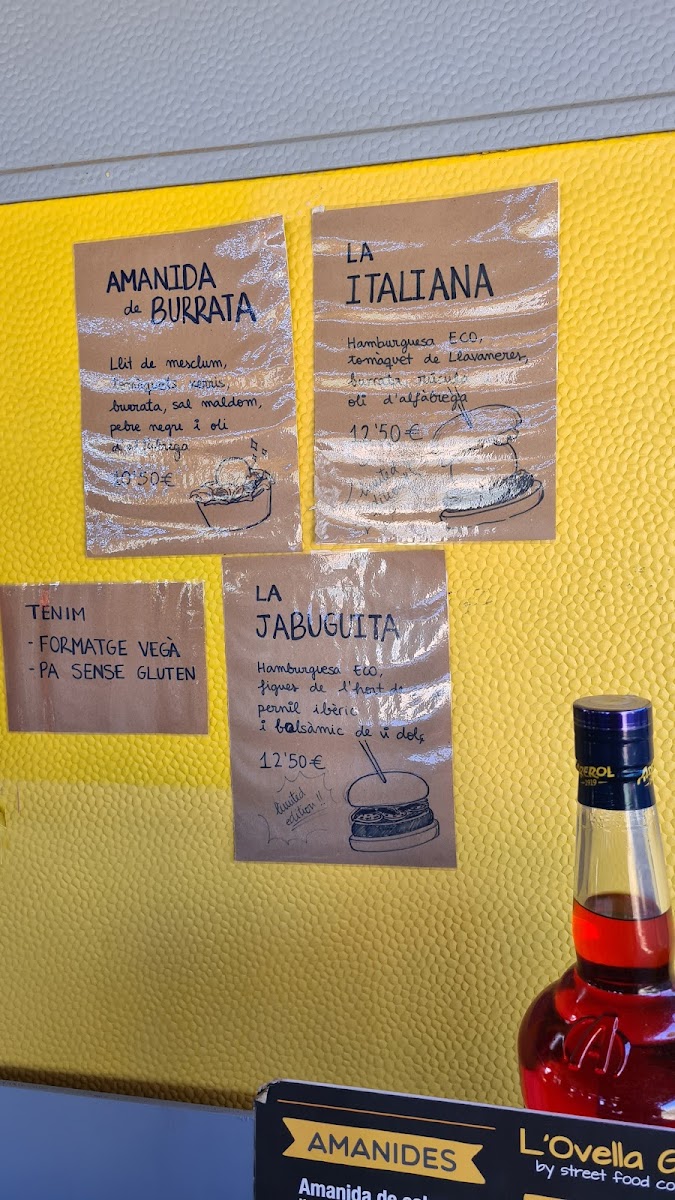 AMANIDA
de BURRATA
Llit de mesclum,
tomàquets xerris,
burrata, sal maldom,
pebre negre i oli
d'alfàbrega
10'50€
LA
ITALIANA
Hamburguesa ECO,
tomàquet de Llavaneres,
burrata, rúcula
oli d'alfàbrega
12'50€
limited
TENIM
- FORMATGE VEGÀ
- PA SENSE GLUTEN
LA
JABUGUITA
Hamburguesa ECO,
figues de l'hort de
pernil ibèric
i balsàmic de vi dolç
12'50€
limited
edition!!
1919
AMANIDES
L'Ovella
by street food
Amanida de